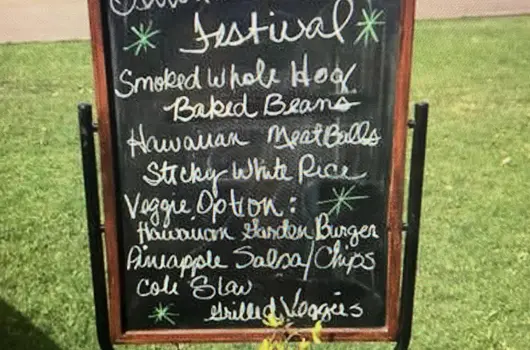 Festival
Smoked Whole Hog
Baked Beans
Hawaiian Meatballs
Sticky White Rice
Veggie Option:
Hawaiian Garden Burger
Pineapple Salsa/Chips
Cole Slaw
Grilled Veggies